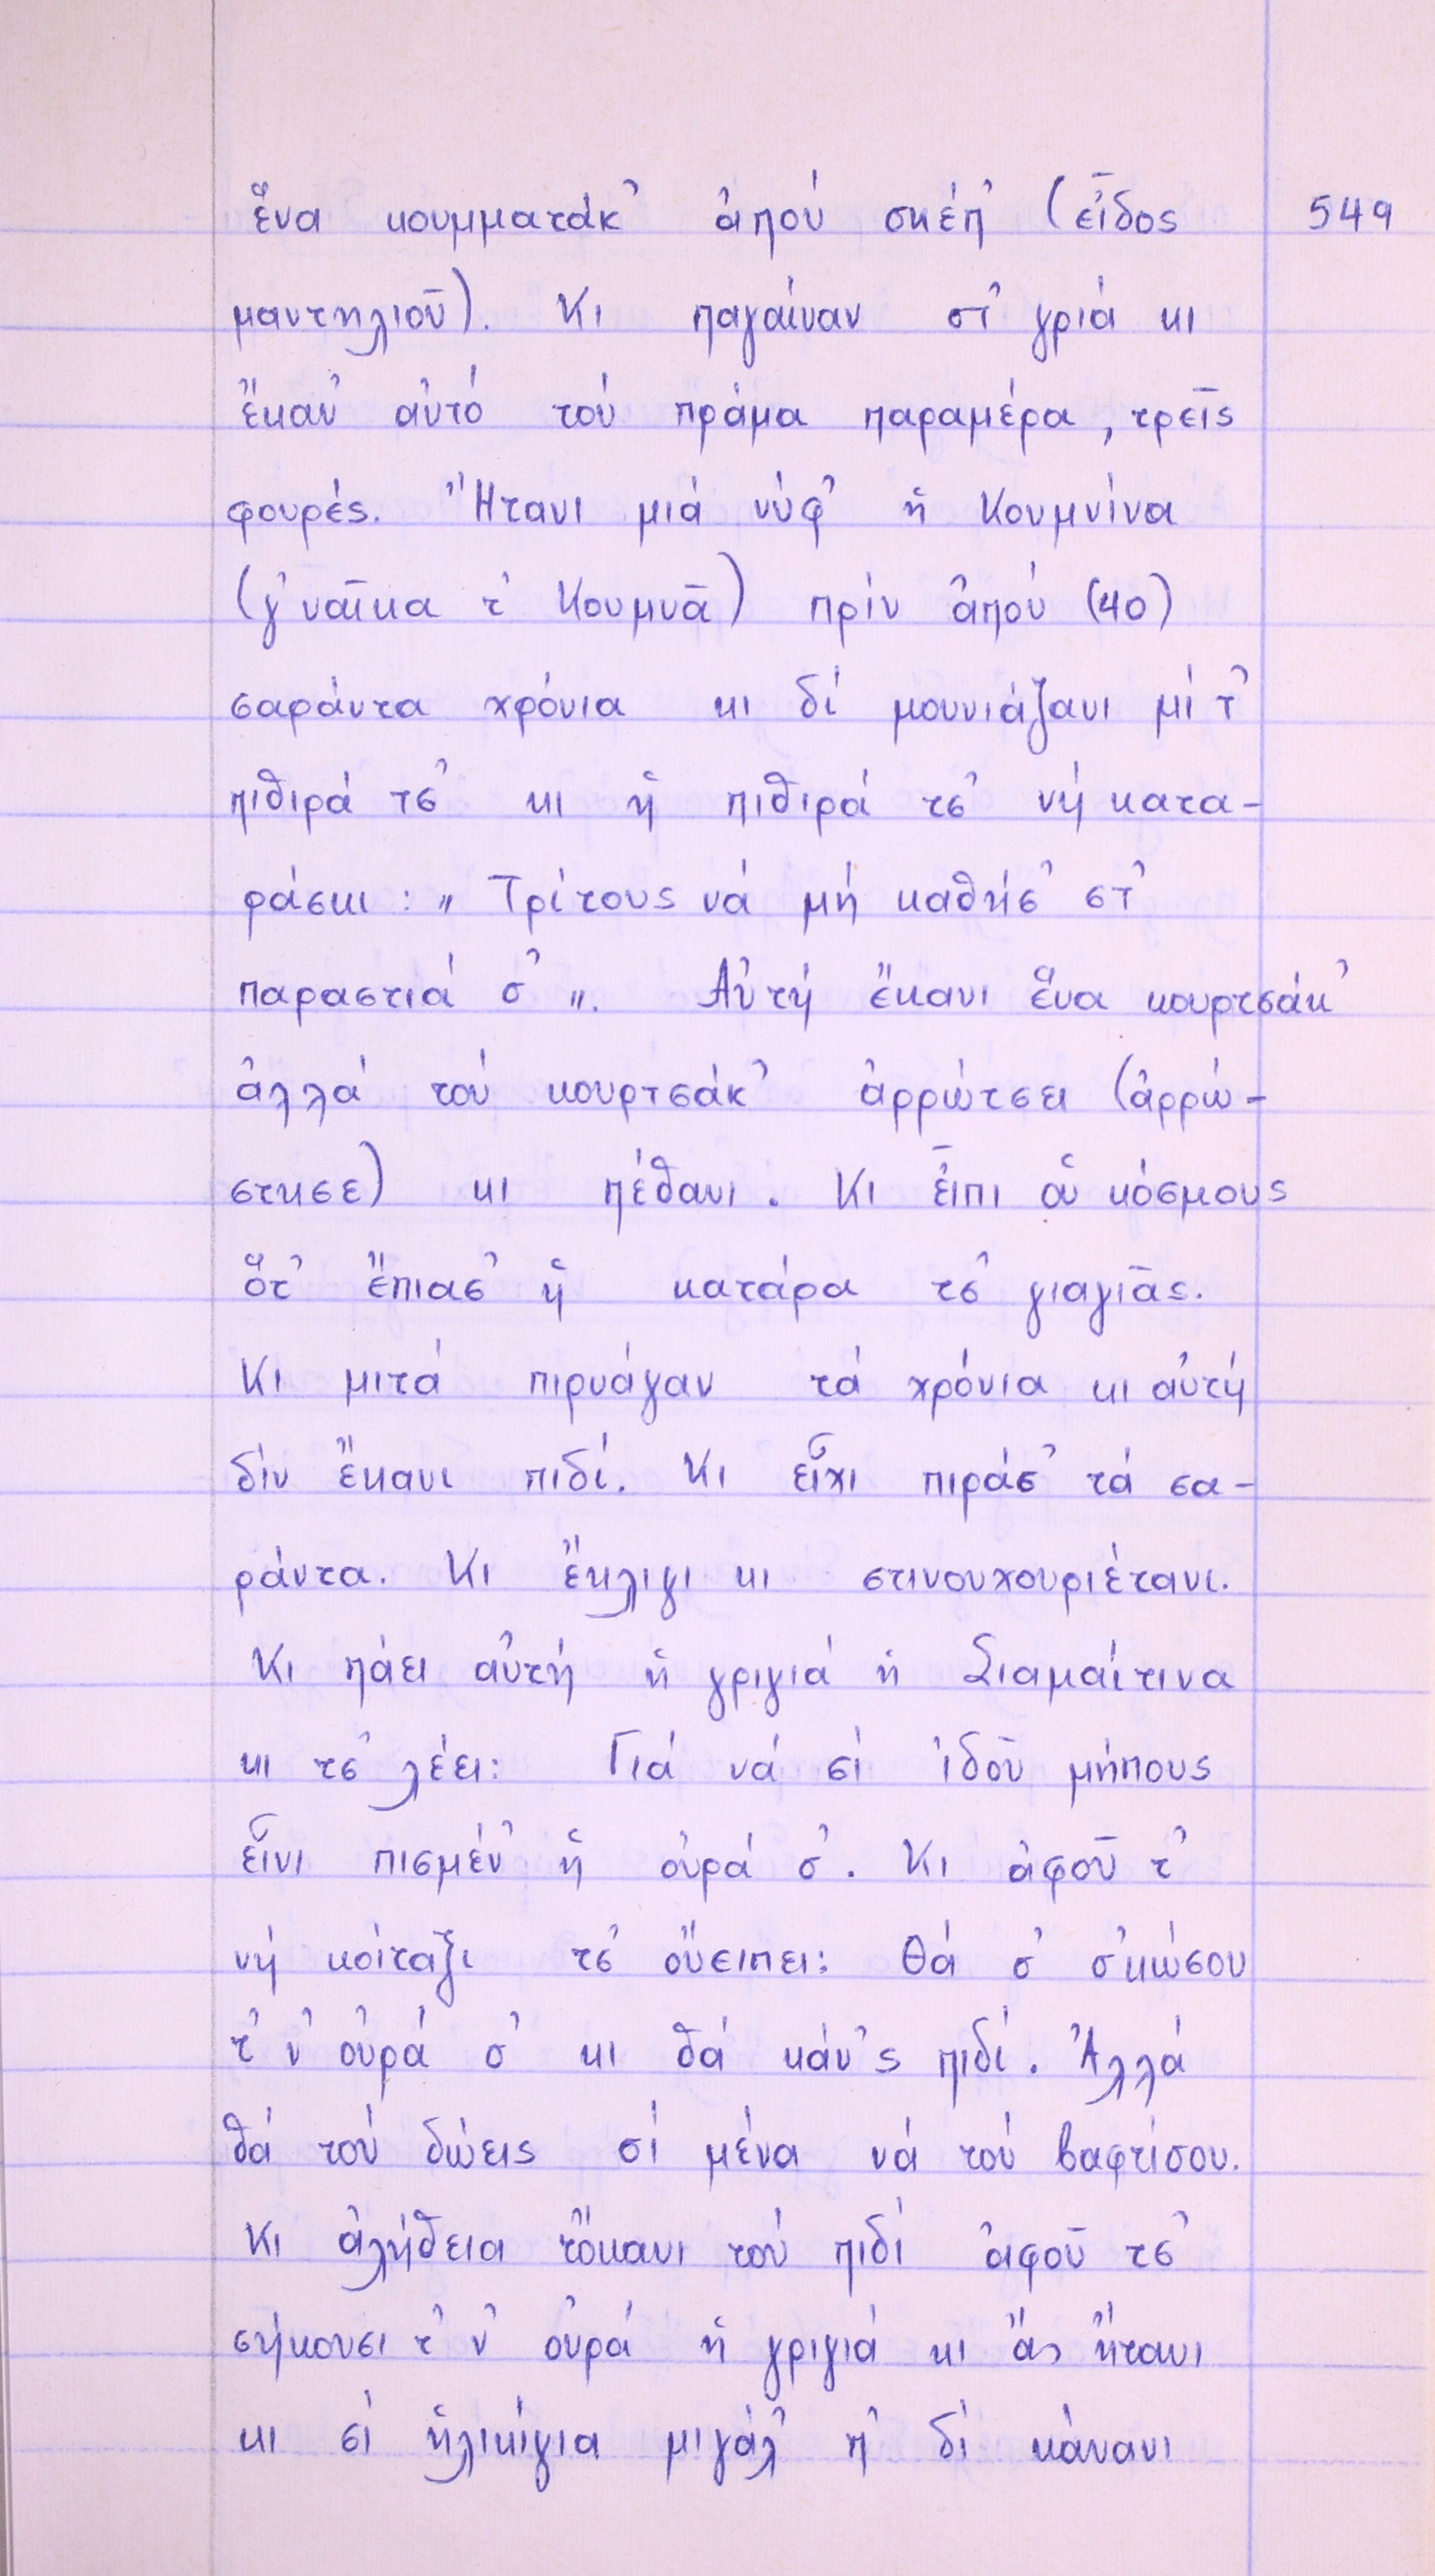 ἕνα κουμματάκ' ἀπού σκέπ' (εἶδος 549
μαντηλιοῦ). Κι παγαίναν στ' γριά κι
ἔκαν' αὐτό τού πράμα παραμέρα, τρεῖς
φουρές. Ἤτανι μιά νύφ' ἡ Κουμνίνα
(γ'ναῖκα τ' Κουμνᾶ) πρίν ἀπού (40)
σαράντα χρόνια κι δί μουνιάζανι μί τ'
πιθιρά τσ' κι ἡ πιθιρά τσ' νή κατα-
ράσκι: „ Τρίτους νά μή καθήσ' στ'
παραστιά σ' „. Αὐτή ἔκανι ἕνα κουρτσάκ'
ἀλλά τού κουρτσάκ' ἀρρώτσει (ἀρρώ-
στησε) κι πέθανι. Κι εἶπι οὑ κόσμους
ὅτ' ἔπιασ' ἡ κατάρα τσ' γιαγιᾶς.
Κι μιτά πιρνάγαν τά χρόνια κι αὐτή
δίν ἔκανι πιδί. Κι εἶχι πιράσ' τά σα-
ράντα. Κι ἔκλιγι κι στινουχουριέτανι.
Κι πάει αὐτή ἡ γριγιά ἡ Σιαμαίτινα
κι τσ' λέει: Γιά νά σί ἰδοῦ μήπους
εἶνι πισμέν' ἡ οὐρά σ'. Κι ἀφοῦ τ'
νή κοίταξι τσ' οὕειπει: Θά σ' σ'κώσου
τ' ν' οὐρά σ' κι θά κάν'ς πιδί. Ἀλλά
θά τού δώεις σί μένα νά τού βαφτίσου.
Κι ἀλήθεια τὄκανι τού πιδί ἀφοῦ τσ'
σήκουσι τ' ν' οὐρά ἡ γριγιά κι ἄς ἤτανι
κι σί ἡλικίγια μιγάλ' π' δί κάνανι